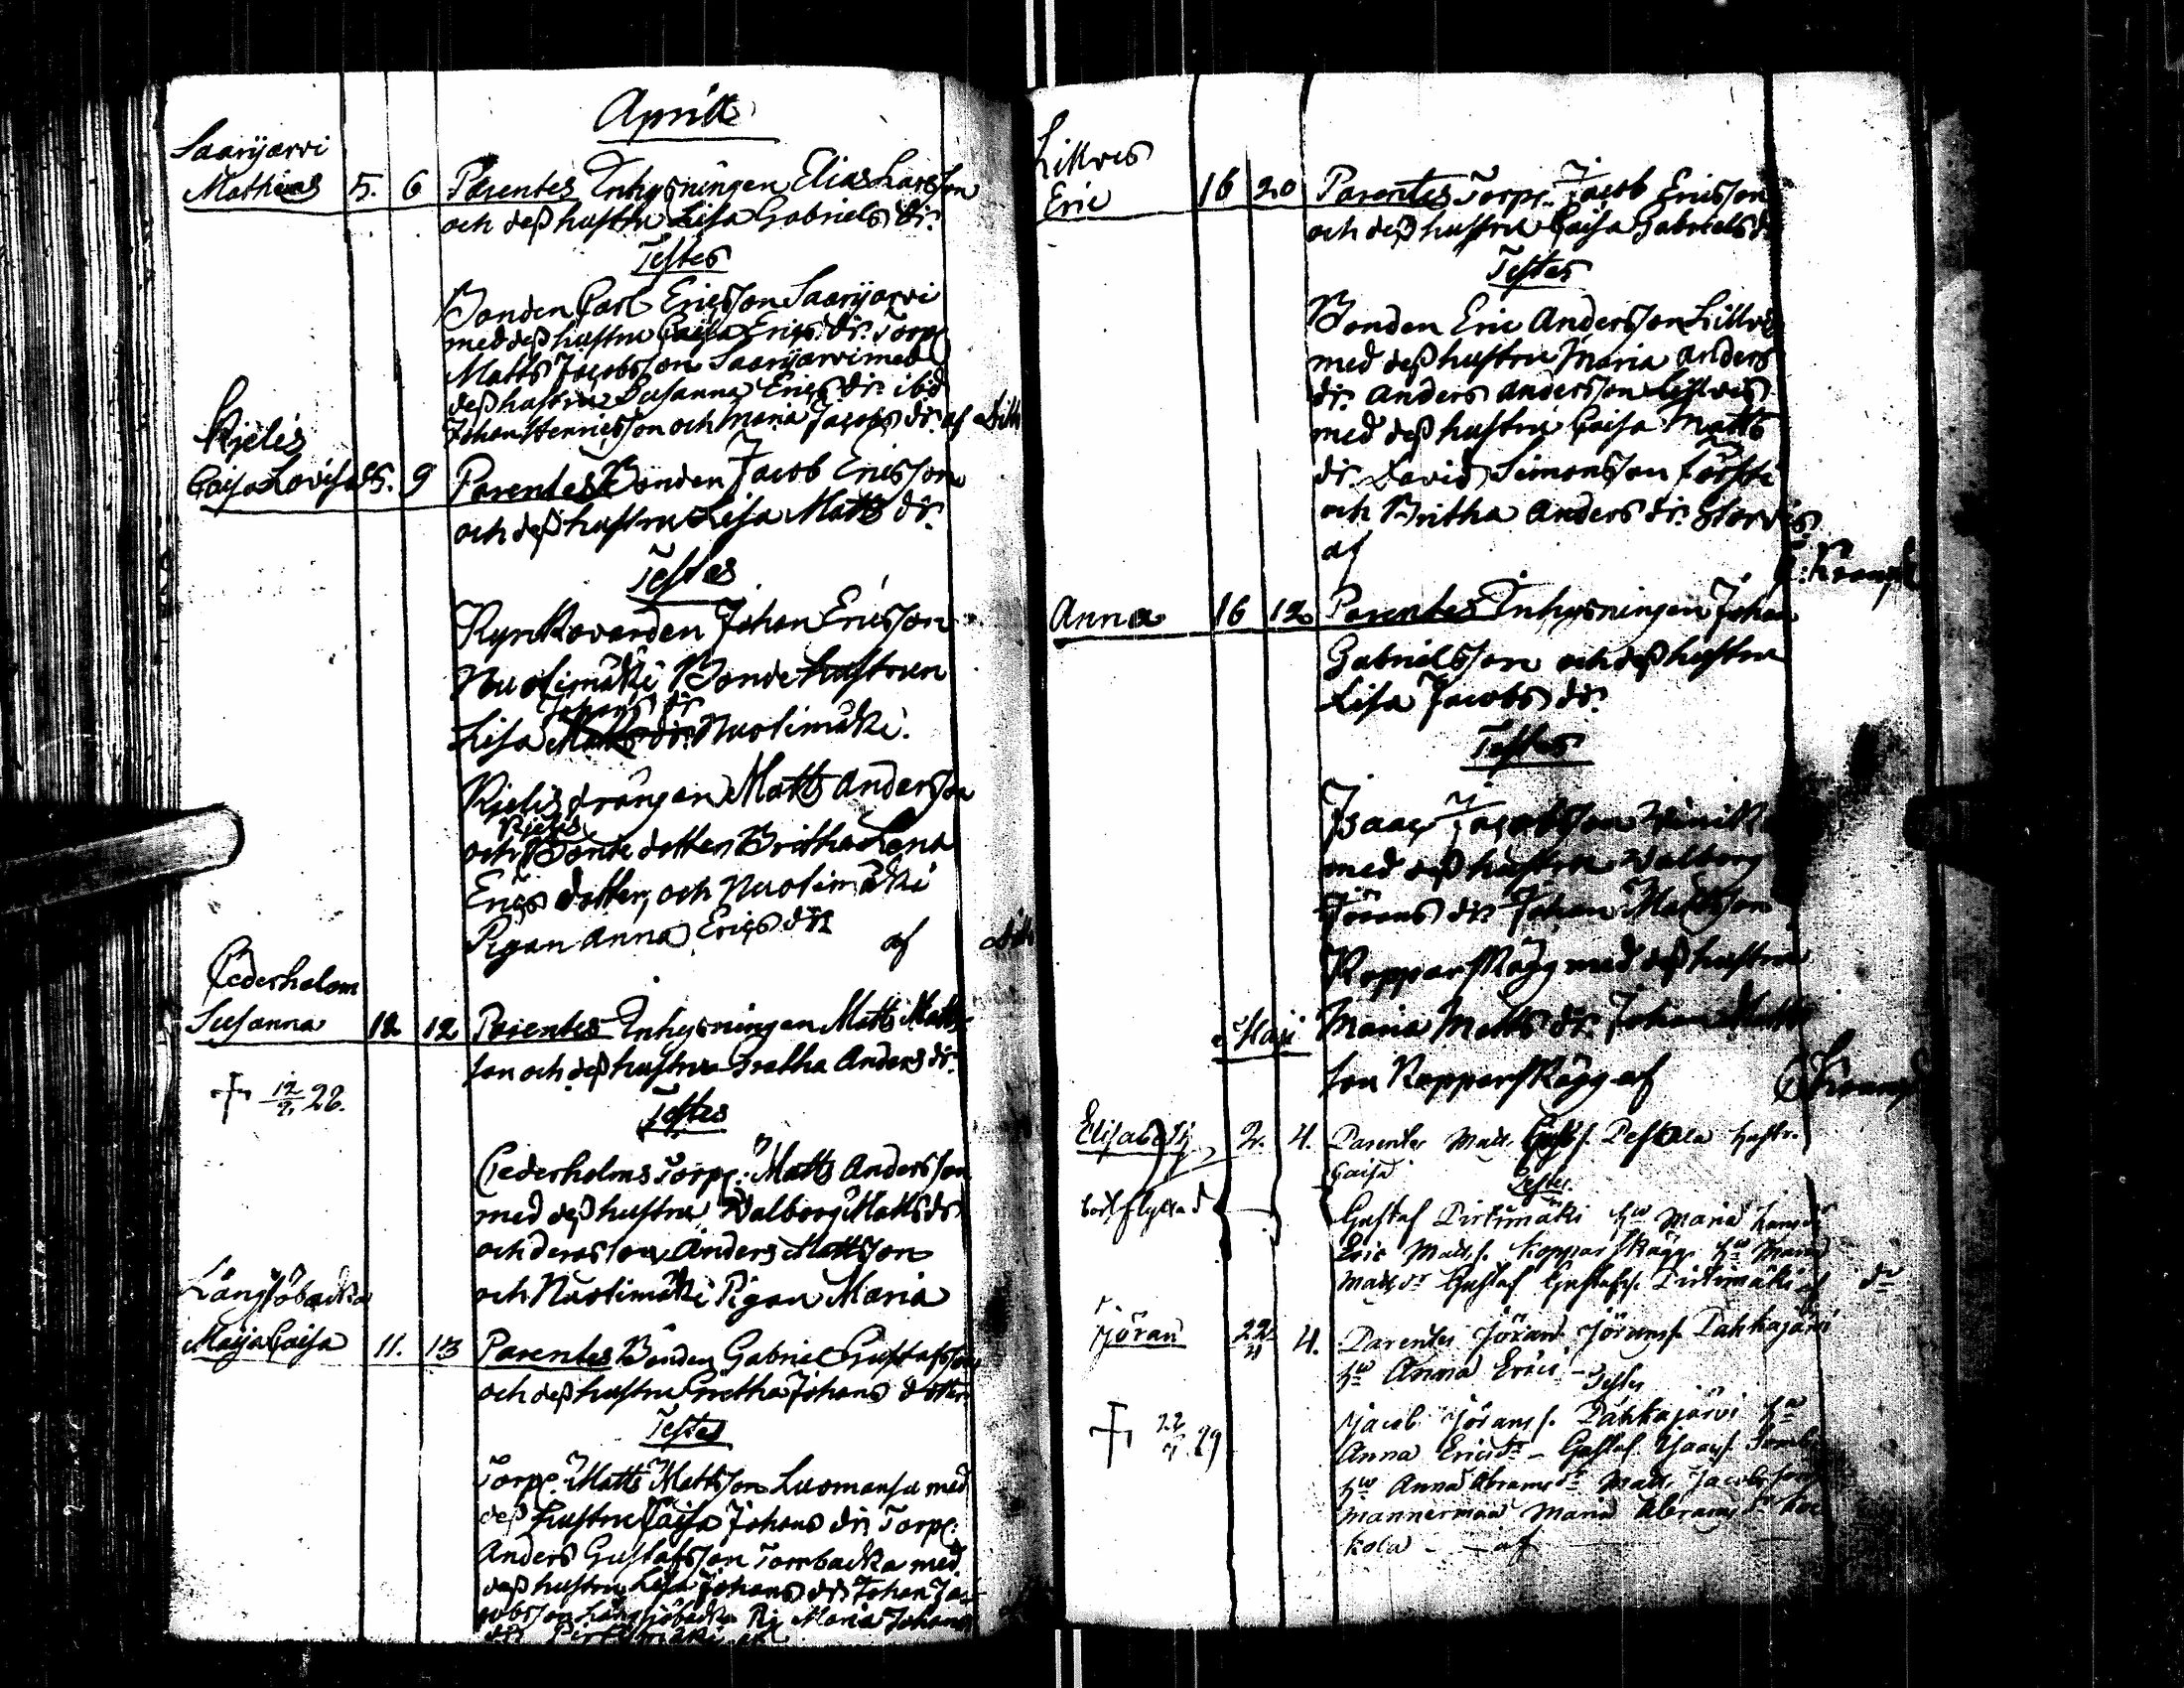 Aprill
Saarijarvi
Mathias 5. 6 Parentes Inhysningen Elias Larsson
och dess hustru Lisa Gabriels dr.
Testes
Bonden Carl Ericsson Saarijarvi
med dess hustru Caisa Erics dr. Torp.
Matts Jacobsson Saarijarvi med
dess hustru Susanna Erics dr. ibid
Johan Henricsson och Maria Jacobs dr. af
Kjelis
Caisa Lovisa 5. 9 Parentes Bonden Jacob Ericsson
och dess hustru Lisa Matts dr.
Testes
Kyrkovärden Johan Ericsson
Nuolimäki Bonde hustrun
Johans dr
Lisa Matts dr. Nuolimäki.
Kjelis drängen Matts Andersson
Kjelis
och Bonde dotter Britha Lena
Erics dotter, och Nuolimäki
Pigan Anna Erics dr af
Cederholm
Susanna 12 12 Parentes Inhysningen Matts Matts
son och dess hustru Gretha Anders dr.
† 28.
Testes
Cederholms Torp. Matts Andersson
med dess hustru Walborg Matts dr
och deras son Anders Mattsson
och Nuolimäki Pigan Maria
Långsjöbacka
Maija Caisa 11. 13 Parentes Bonden Gabriel Gustafsson
och dess hustru Gretha Johans dotter
Testes
Torp. Matts Mattsson Luomansu med
dess hustru Caisa Johans dr. Torp.
Anders Gustafsson Torrbacka med
dess hustru Lisa Johans dr. Johan Ja
cobsson Långsjöbacka Pi. Maria Johans
Lillres
Eric 16 20 Parentes Torp. Jacob Ericsson
och dess hustru Caisa Gabriels dr
Testes
Bonden Eric Andersson Lillres
med dess hustru Maria Anders
dr. Anders Andersson Lillres
med dess hustru Caisa Matts
dr. David Simonsson
och Britha Anders dr. Stor
af
Anna 16 12 Parentes Inhysningen Johan
Gabrielsson och dess hustru
Lisa Jacobs dr.
Testes
Isaac Jacobsson
med dess hustru Walborg
Jörans dr Johan Mattsson
Kopparskägg med dess hustru
Maria Matts dr. Johan Matts
son Kopparskägg af
Maji
Elisabeth 2. 4. Parentes Matts Gustfs. hustr.
Caisa
Testes.
bortflyttad
Gustaf Pirtimäki hu Maria
Eric Matts. Kopparskägg hu Maria
Matts dr Gustaf Gustafs. Pirtimäki af dr
Jöran 22 4. Parentes Jöran Jörans. Pahkajärvi
hu Anna Erici
Testes
† 29
Jacob Jörans. Pahkajärvi hu
Anna Erics dr - Gustaf Isaacs.
hu Anna Abrams dr Matts Jacobsson
Mannermaa Maria Abrams dr
kola - af